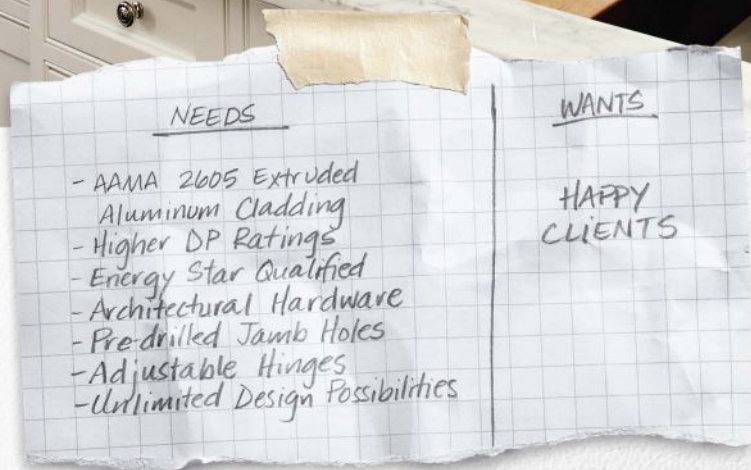 NEEDS
- AAMA 2605 Extruded
Aluminum Cladding
- Higher DP Ratings
- Energy Star Qualified
- Architectural Hardware
- Pre-drilled Jamb Holes
- Adjustable Hinges
- Unlimited Design Possibilities
WANTS
HAPPY
CLiENTS